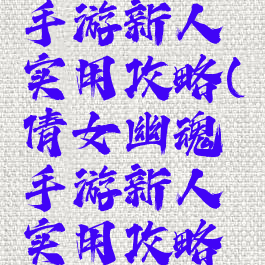 手游新人
实用攻略(
倩女幽魂
手游新人
实用攻略